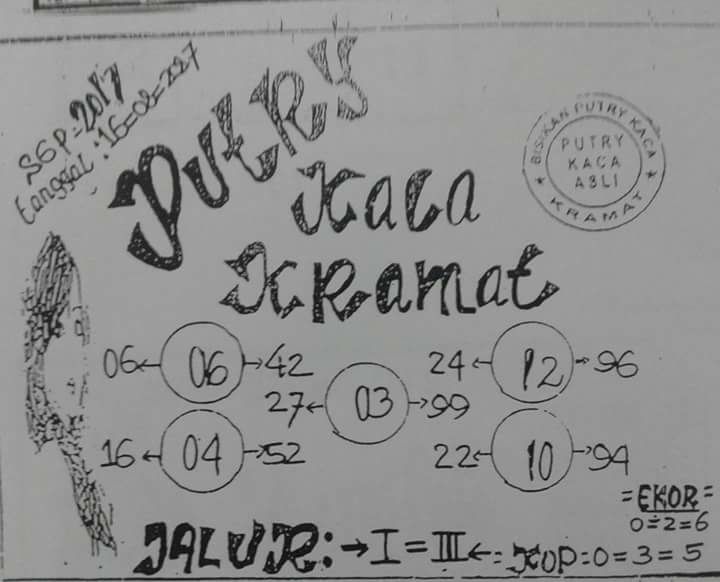 SGP=2017
Tanggal:16=08=227
Putry
Kaca
Kramat
BISIKAN PUTRY KACA
PUTRY
KACA
ASLI
★ KRAMAT ★
06← 06 →42
24← 12 →96
27← 03 →99
16← 04 →52
22← 10 →94
=EKOR=
0=2=6
JALUR:→I=III←=KOP=0=3=5